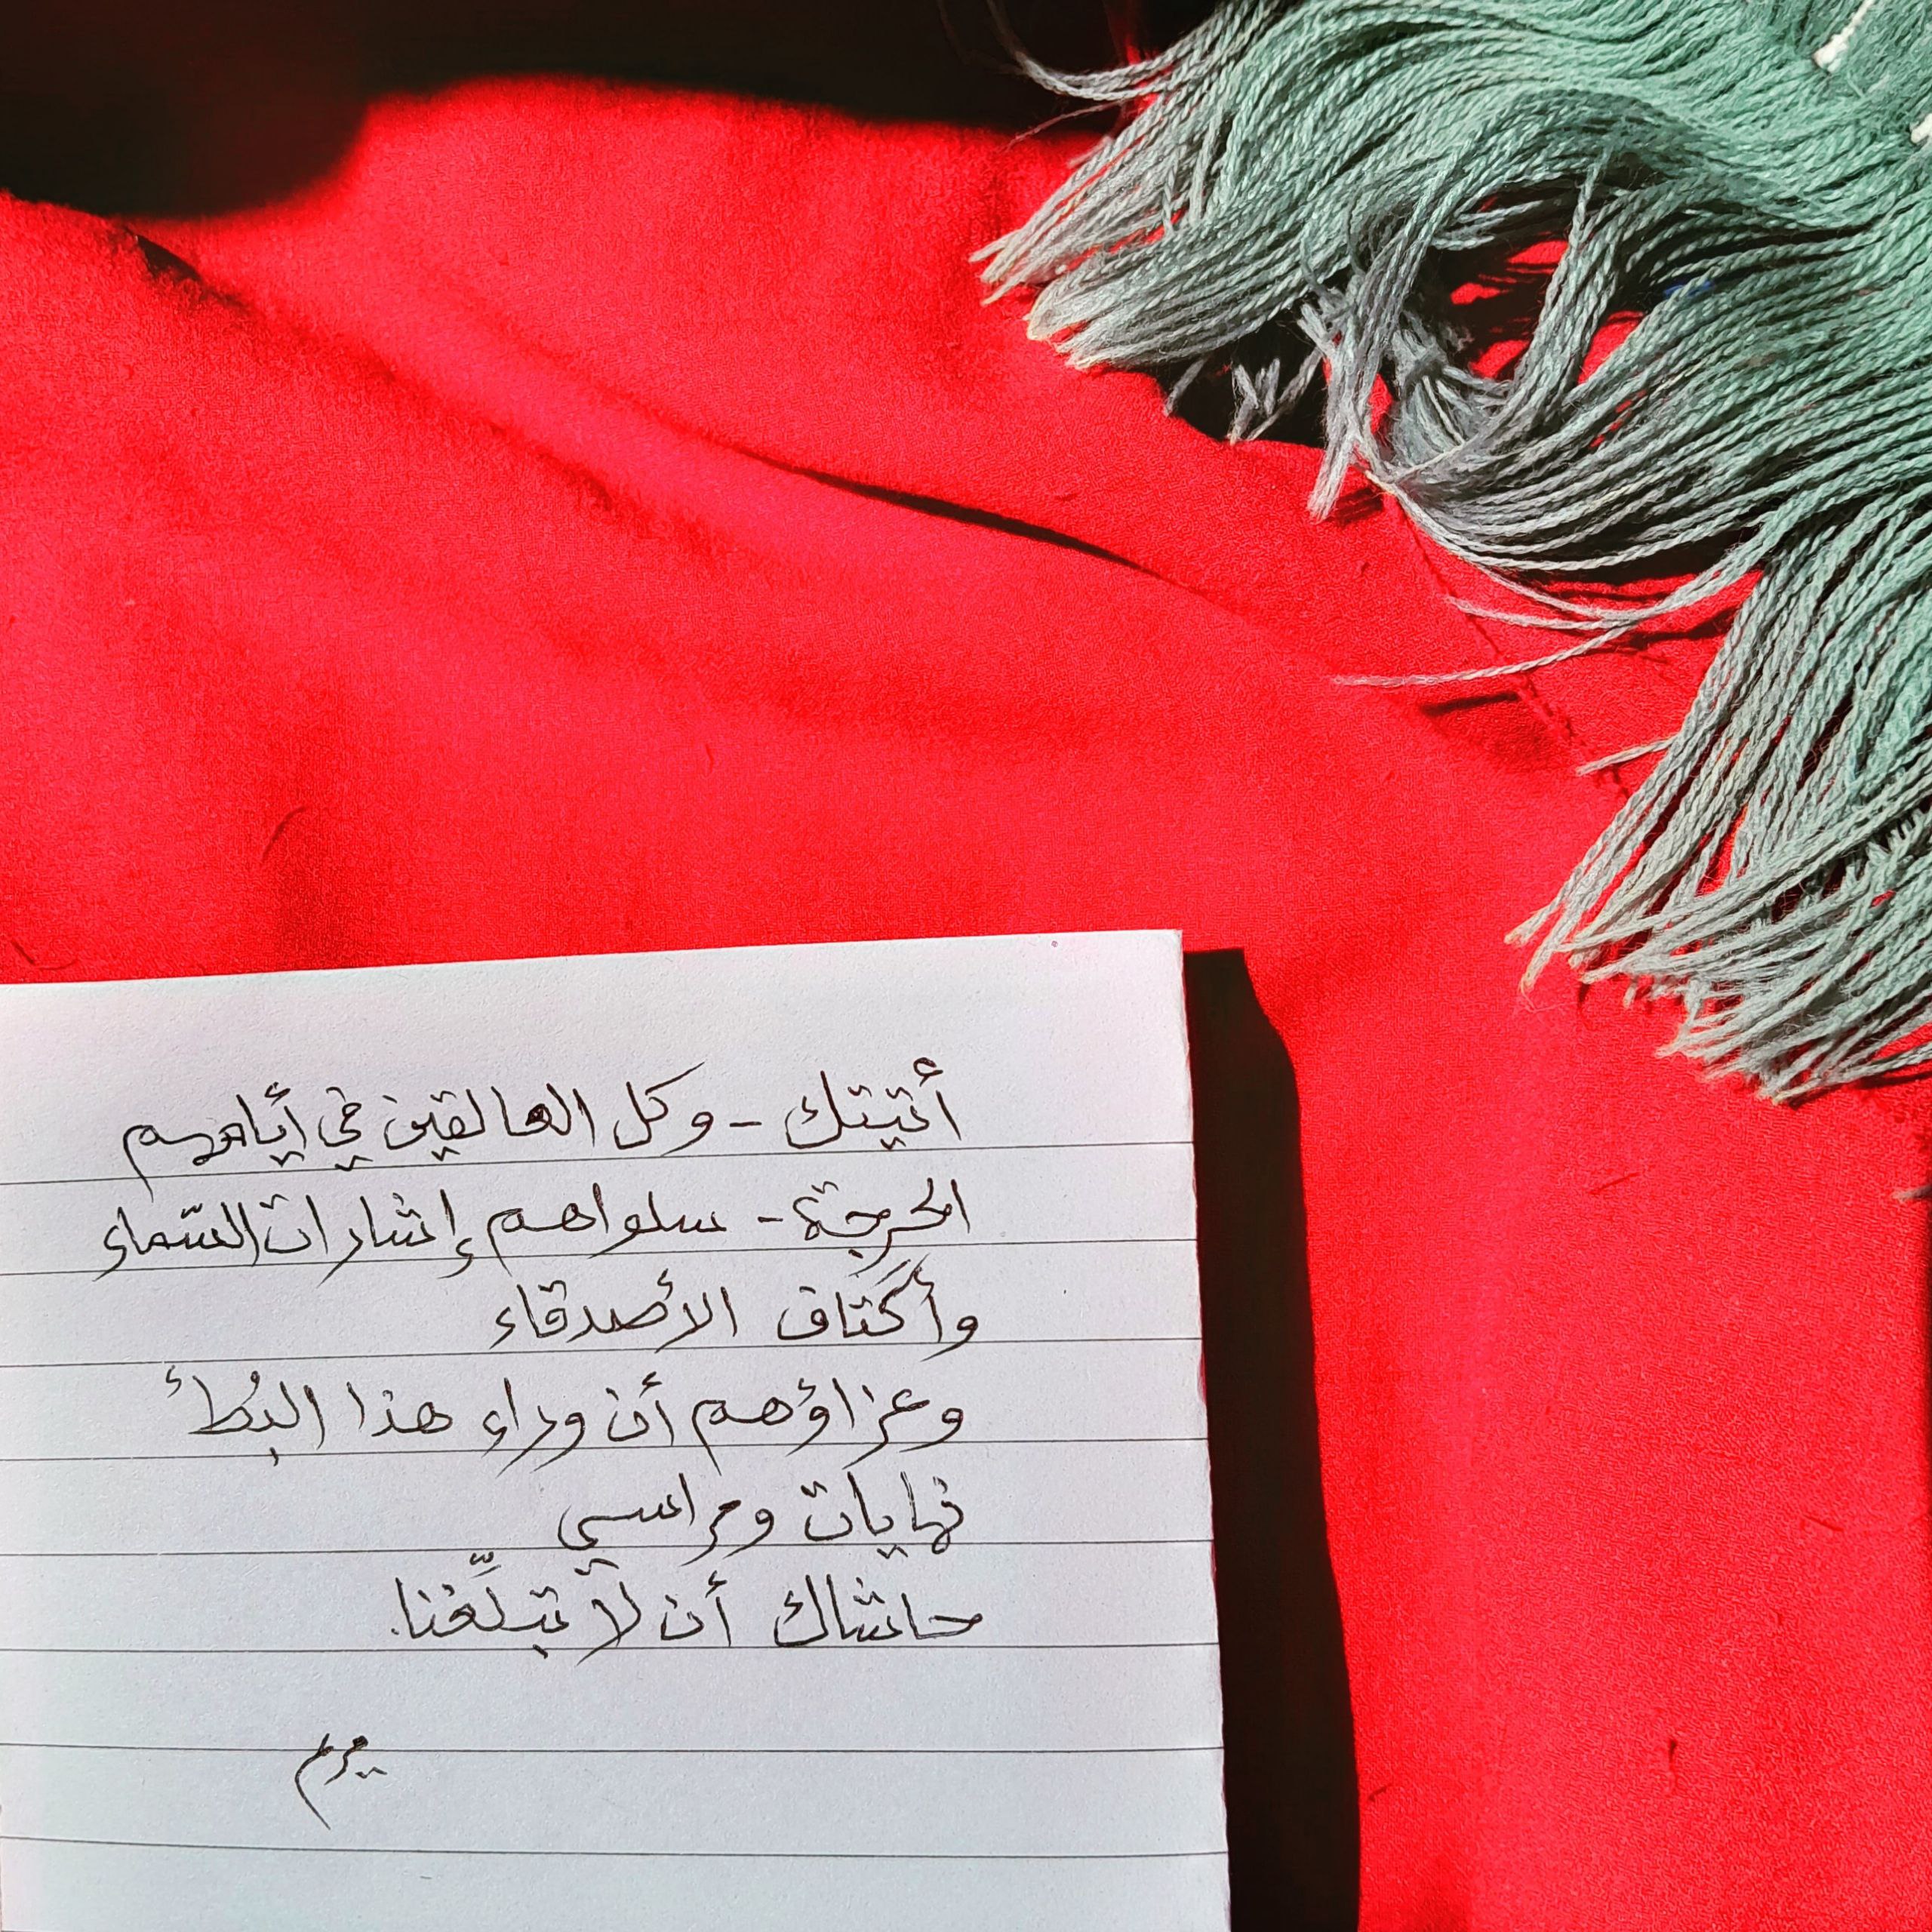 أتيتك - وكل العالقين في أيامهم
الحرجة - سلواهم إشارات السّماء
وأكتاف الأصدقاء
وعزاؤهم أن وراء هذا البُطأ
نهايات ومراسي
حاشاك أن لّا تبلّغنا.
مريم